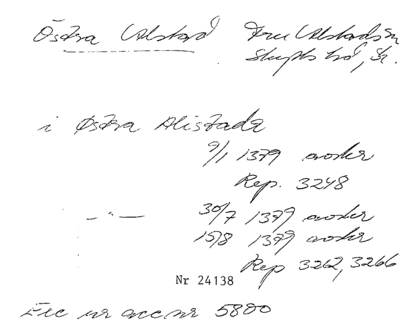 Östra Alstad
Skytts hd, Sk.
i Østra Alistade
9/1 1379 avskr
Rep. 3248
— " — 30/7 1379 avskr
15/8 1379 avskr
Rep 3262, 3266
Nr 24138
ur acc.nr 5800